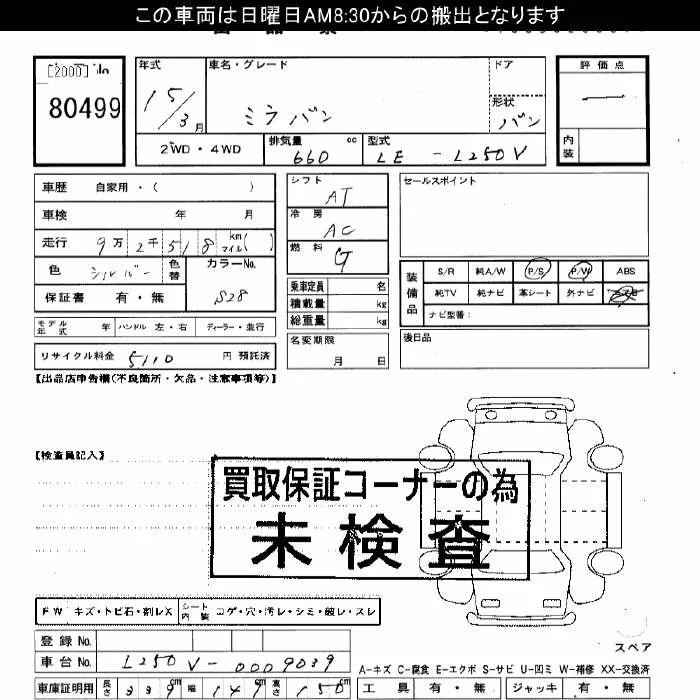 この車両は日曜日AM8:30からの搬出となります
[2000] No
80499
年式 15/3月
車名・グレード ミラバン
ドア
形状 バン
評価点 —
内装
2WD・4WD
排気量 660 cc
型式 LE - L250V
車歴 自家用・( )
車検 年 月
走行 9万2千518 km マイル( )
色 シルバー 色替
カラーNo. S28
保証書 有・無
シフト AT
冷房 AC
燃料 G
乗車定員 名
積載量 kg
総重量 kg
セールスポイント
装備品
S/R 純A/W P/S P/W ABS
純TV 純ナビ 革シート 外ナビ
ナビ型番:
モデル年式 年 ハンドル 左・右 ディーラー・並行
名変期限 月 日
後日品
リサイクル料金 5110 円 預託済
【出品店申告欄(不良箇所・欠品・注意事項等)】
【検査員記入】
買取保証コーナーの為
未検査
FW キズ・トビ石・割レX
シート内装 コゲ・穴・汚レ・シミ・破レ・スレ
スペア
登録No.
車台No. L250V-0009039
A-キズ C-腐食 E-エクボ S-サビ U-凹ミ W-補修 XX-交換済
車庫証明用 長さ 339cm 幅 147cm 高さ 150cm
工具 有・無 ジャッキ 有・無